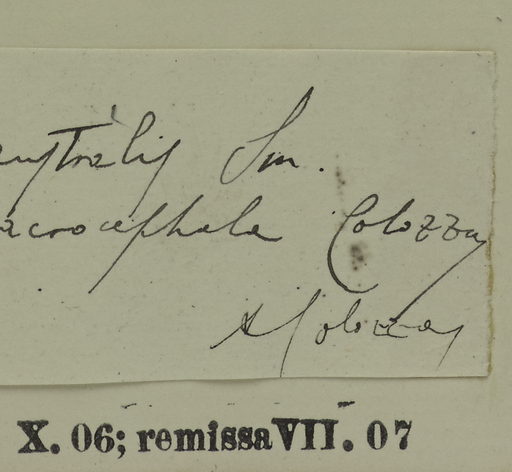 australis Sm.
macrocephala Colozza
A Colozza
X. 06; remissa VII. 07